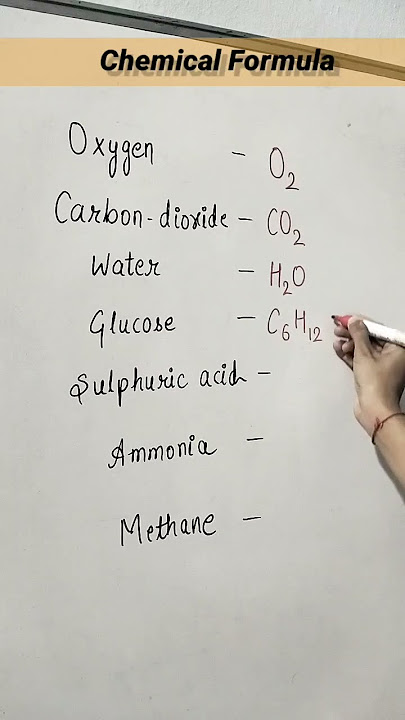 Chemical Formula
Oxygen - O₂
Carbon-dioxide - CO₂
Water - H₂O
Glucose - C₆H₁₂
Sulphuric acid -
Ammonia -
Methane -